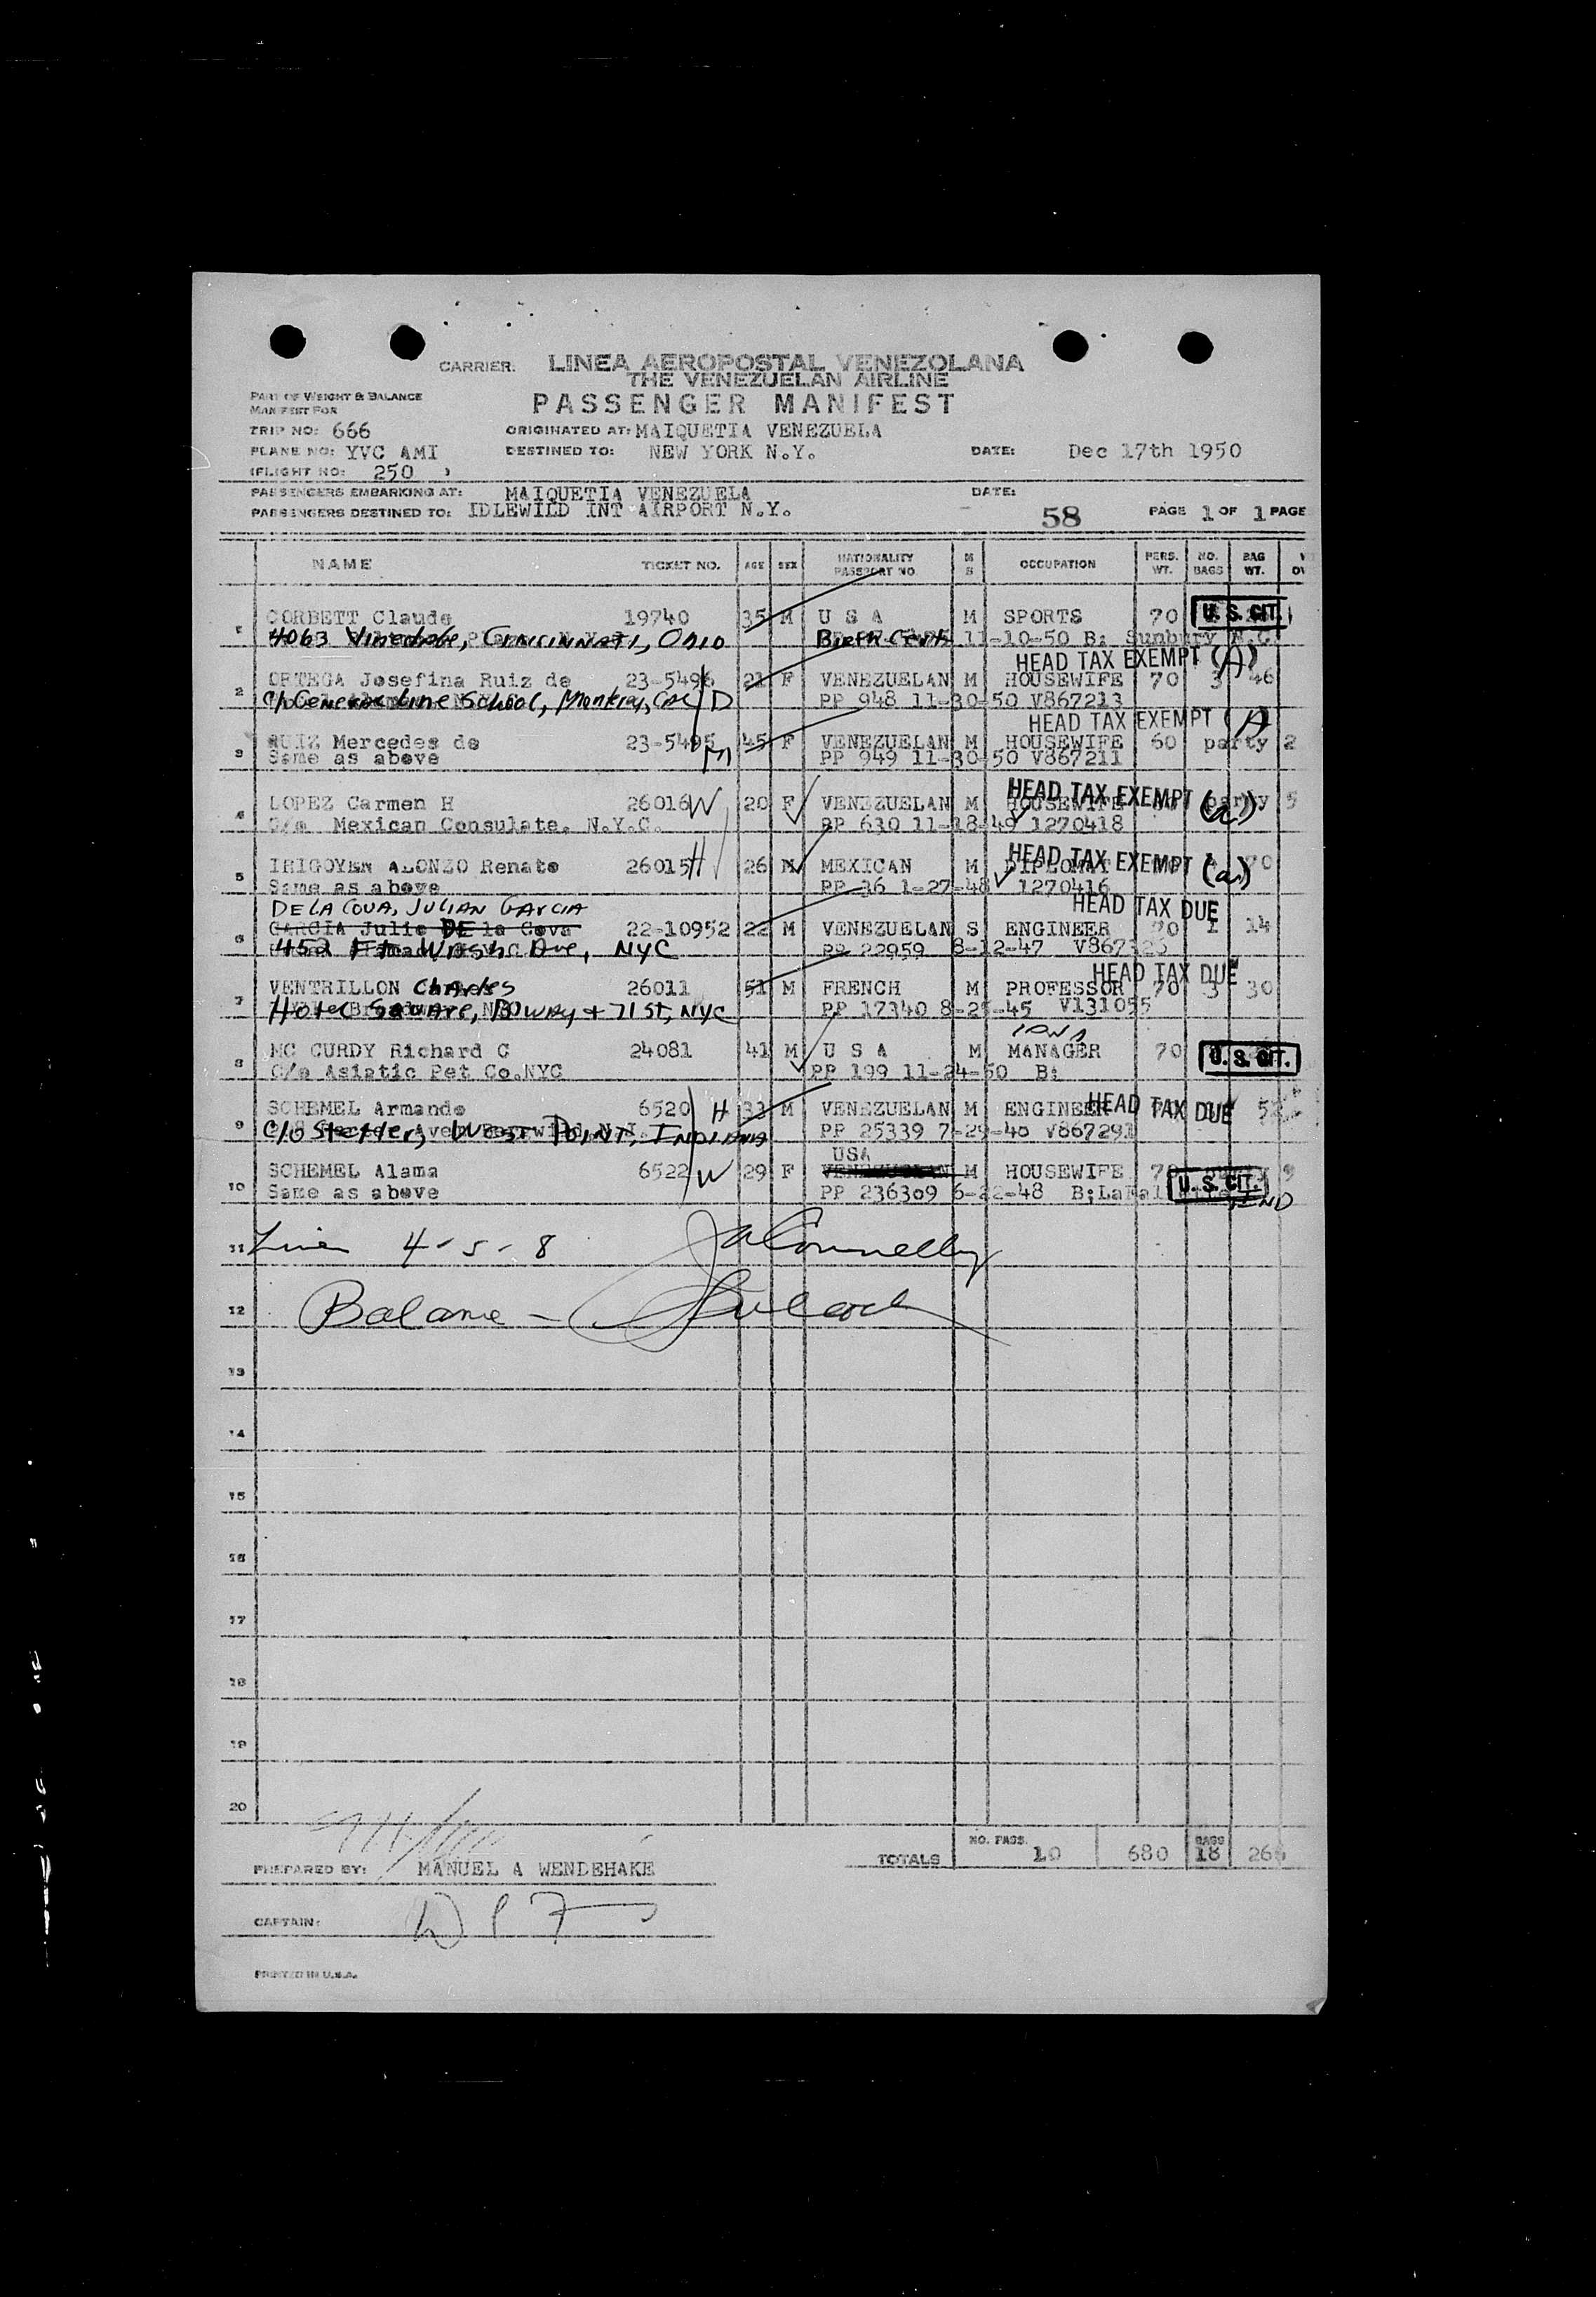 CARRIER: LINEA AEROPOSTAL VENEZOLANA
THE VENEZUELAN AIRLINE
PART OF WEIGHT & BALANCE
MANIFEST FOR
PASSENGER MANIFEST
TRIP NO: 666 ORIGINATED AT: MAIQUETIA VENEZUELA
PLANE NO: YVC AMI DESTINED TO: NEW YORK N.Y. DATE: Dec 17th 1950
(FLIGHT NO: 250 )
PASSENGERS EMBARKING AT: MAIQUETIA VENEZUELA DATE:
PASSENGERS DESTINED TO: IDLEWILD INT AIRPORT N.Y. 58 PAGE 1 OF 1 PAGE
NAME TICKET NO. AGE SEX NATIONALITY PASSPORT NO. M S OCCUPATION PERS. WT. NO. BAGS BAG WT.
1 CORBETT Claude 19740 35 M U S A M SPORTS 70 U.S. CIT.
4063 Vinedale, CINCINNATI, OHIO Birth Cert. 11-10-50 B: Sunbury N.C.
HEAD TAX EXEMPT (A)
2 ORTEGA Josefina Ruiz de 23-5496 21 F VENEZUELAN M HOUSEWIFE 70 3 46
C/o General Line School, Monterey, Cal D PP 948 11-30-50 V867213
HEAD TAX EXEMPT (A)
3 RUIZ Mercedes de 23-5495 M 45 F VENEZUELAN M HOUSEWIFE 60 party 2
Same as above PP 949 11-30-50 V867211
4 LOPEZ Carmen H 26016 W 20 F VENEZUELAN M HOUSEWIFE HEAD TAX EXEMPT (a) party 5
C/o Mexican Consulate. N.Y.C. PP 630 11-18-49 1270418
5 IRIGOYEN ALONZO Renato 26015 H 26 M MEXICAN M DIPLOMAT HEAD TAX EXEMPT (a)
Same as above PP 36 1-27-48 1270416
DE LA COVA, JULIAN GARCIA HEAD TAX DUE
6 GARCIA Julio DE la Cova 22-10952 22 M VENEZUELAN S ENGINEER 70 1 14
452 Ft. Wash. Ave, NYC PP 22959 8-12-47
HEAD TAX DUE
7 VENTRILLON Charles 26011 51 M FRENCH M PROFESSOR 70 3 30
Hotel Square, Bway + 71 St, NYC PP 17340 8-25-45 V131055
8 MC CURDY Richard C 24081 41 M U S A M MANAGER 70 U.S. CIT.
C/o Asiatic Pet Co.NYC PP 199 11-24-50 B: IOWA
9 SCHEMEL Armando 6520 H 31 M VENEZUELAN M ENGINEER HEAD TAX DUE
C/o Stetler, West Point, Indiana PP 25339 7-29-48 V867291
USA
10 SCHEMEL Alama 6522 W 29 F VENEZUELAN M HOUSEWIFE 70 U.S. CIT.
Same as above PP 236309 6-22-48 IND
11 Lines 4-5-8 JA Connelly
12 Balance -
13
14
15
16
17
18
19
20
TOTALS NO. PASS. 10 680 BAGS 18
PREPARED BY: MANUEL A WENDEHAKE
CAPTAIN:
PRINTED IN U.S.A.